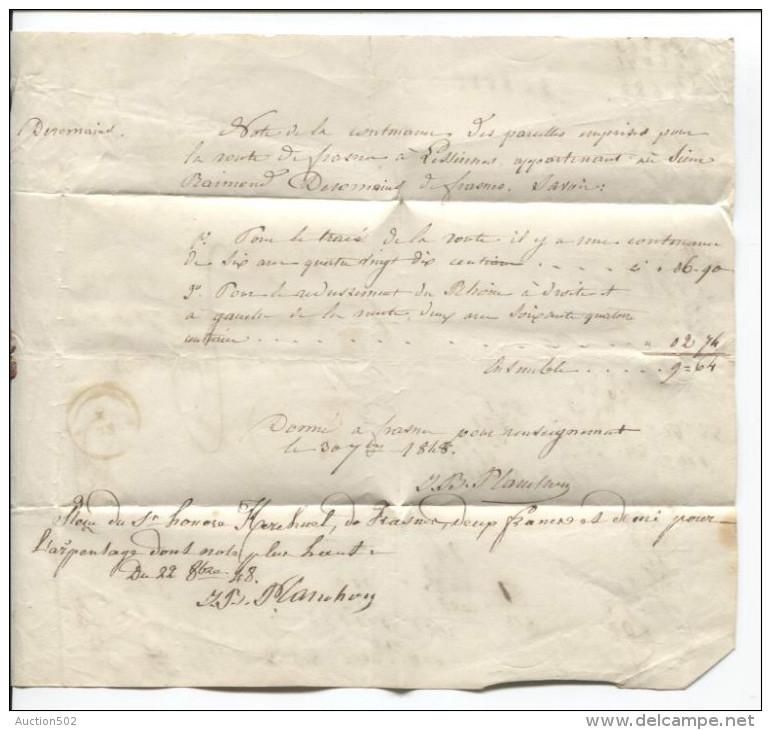 Desromains.
Note de la contenance des parcelles emprises pour
la route de frasnes à Lessinnes, appartenant au Sieur
Raimond Desromains de frasnes. Savoir:
1º. Pour le tracé de la route il y a une contenance
de six ares quatre vingt dix centiares . . . . . 06-90
2º. Pour le à droite et
à gauche de la route, deux ares soixante quatorze
centiares . . . . . . . . . . . 02 74
Ensemble . . . . . 9=64
Donné à frasnes pour renseignement
le 30 7bre 1848.
J.B. Planchon
Reçu du Sr honoré de Frasnes, deux francs et demi pour
L'arpentage dont note plus haut.
Du 22 8bre 48.
J.B. Planchon
Auction502
http://www.delcampe.net